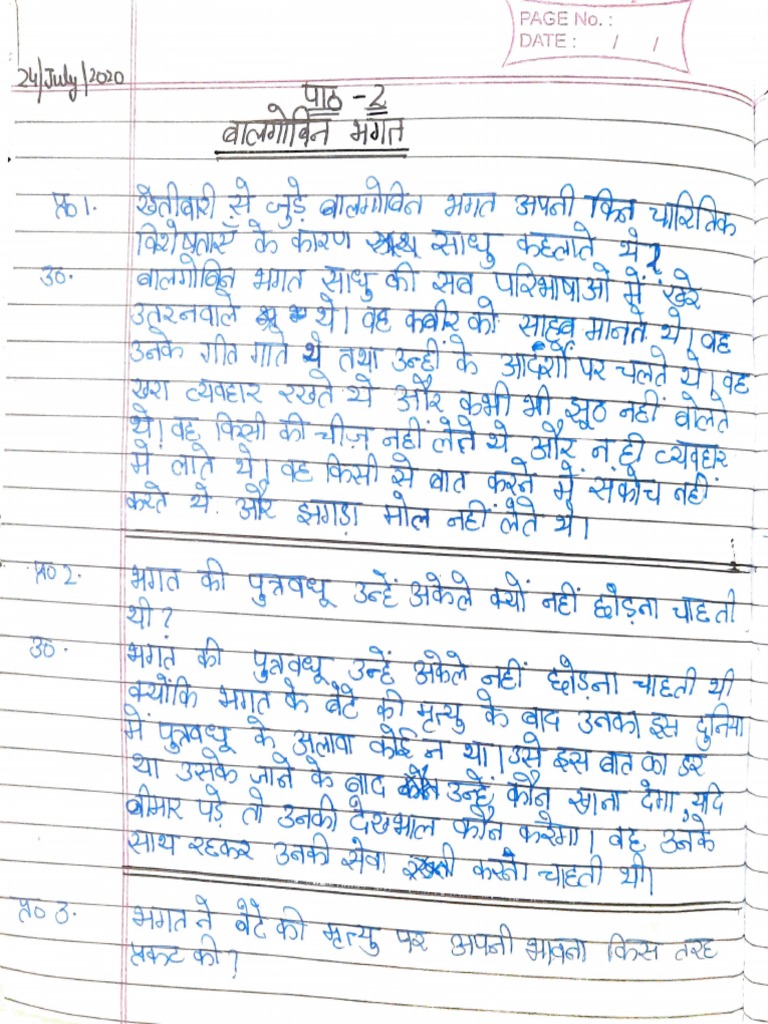 PAGE No. :
DATE : / /
24/July/2020
पाठ - 2
बालगोबिन भगत
प्र० 1. खेतीबारी से जुड़े बालगोबिन भगत अपनी किन चारित्रिक
विशेषताएँ के कारण साधु कहलाते थे?
उ०. बालगोबिन भगत साधु की सब परिभाषाओं में खरे
उतरनवाले थे। वह कबीर को साहब मानते थे। वह
उनके गीत गाते थे तथा उन्हीं के आदर्शों पर चलते थे। वह
खरा व्यवहार रखते थे और कभी भी झूठ नहीं बोलते
थे। वह किसी की चीज़ नहीं लेते थे और न ही व्यवहार
में लाते थे। वह किसी से बात करने में संकोच नहीं
करते थे. और झगड़ा मोल नहीं लेते थे।
प्र० 2. भगत की पुत्रवधू उन्हें अकेले क्यों नहीं छोड़ना चाहती
थी?
उ०. भगत की पुत्रवधू उन्हें अकेले नहीं छोड़ना चाहती थी
क्योंकि भगत के बेटे की मृत्यु के बाद उनका इस दुनिया
में पुत्रवधू के अलावा कोई न था। उसे इस बात का डर
था उसके जाने के बाद उन्हें कौन खाना देगा, यदि
बीमार पड़े तो उनकी देखभाल कौन करेगा। वह उनके
साथ रहकर उनकी सेवा करना चाहती थी।
प्र० 3. भगत ने बेटे की मृत्यु पर अपनी भावना किस तरह
प्रकट की?